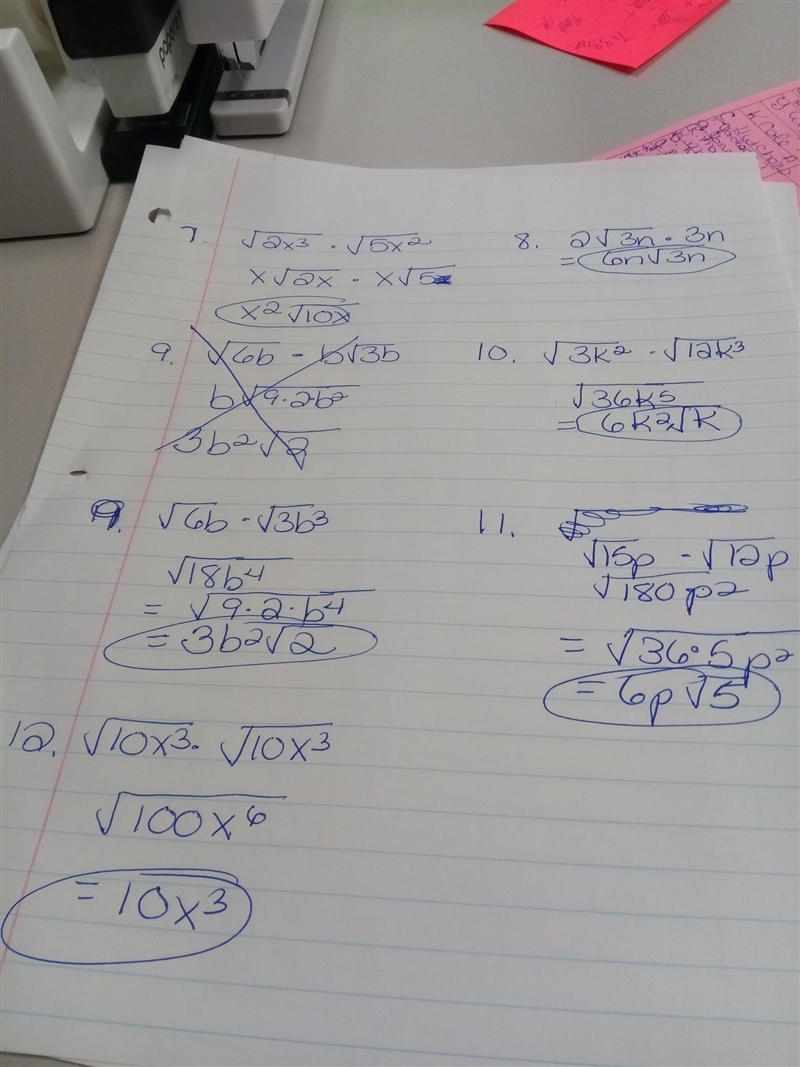 7. √2x³ · √5x²
x√2x · x√5
x²√10x
8. 2√3n · 3n
= 6n√3n
9. √6b - b√3b
b√9·2b²
3b²√2
10. √3k² · √12k³
√36k5
= 6k²√k
9. √6b · √3b³
√18b⁴
= √9·2·b⁴
= 3b²√2
11. √15p - √12p
√180p²
= √36·5p²
= 6p√5
12. √10x³ · √10x³
√100x⁶
= 10x³